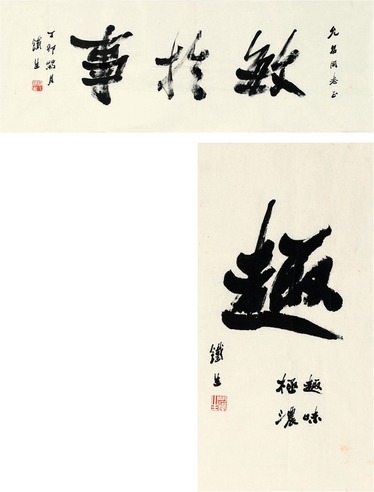 允昌同志正
敏於事
丁卯菊月
鐵生
趣
趣味
極濃
鐵生